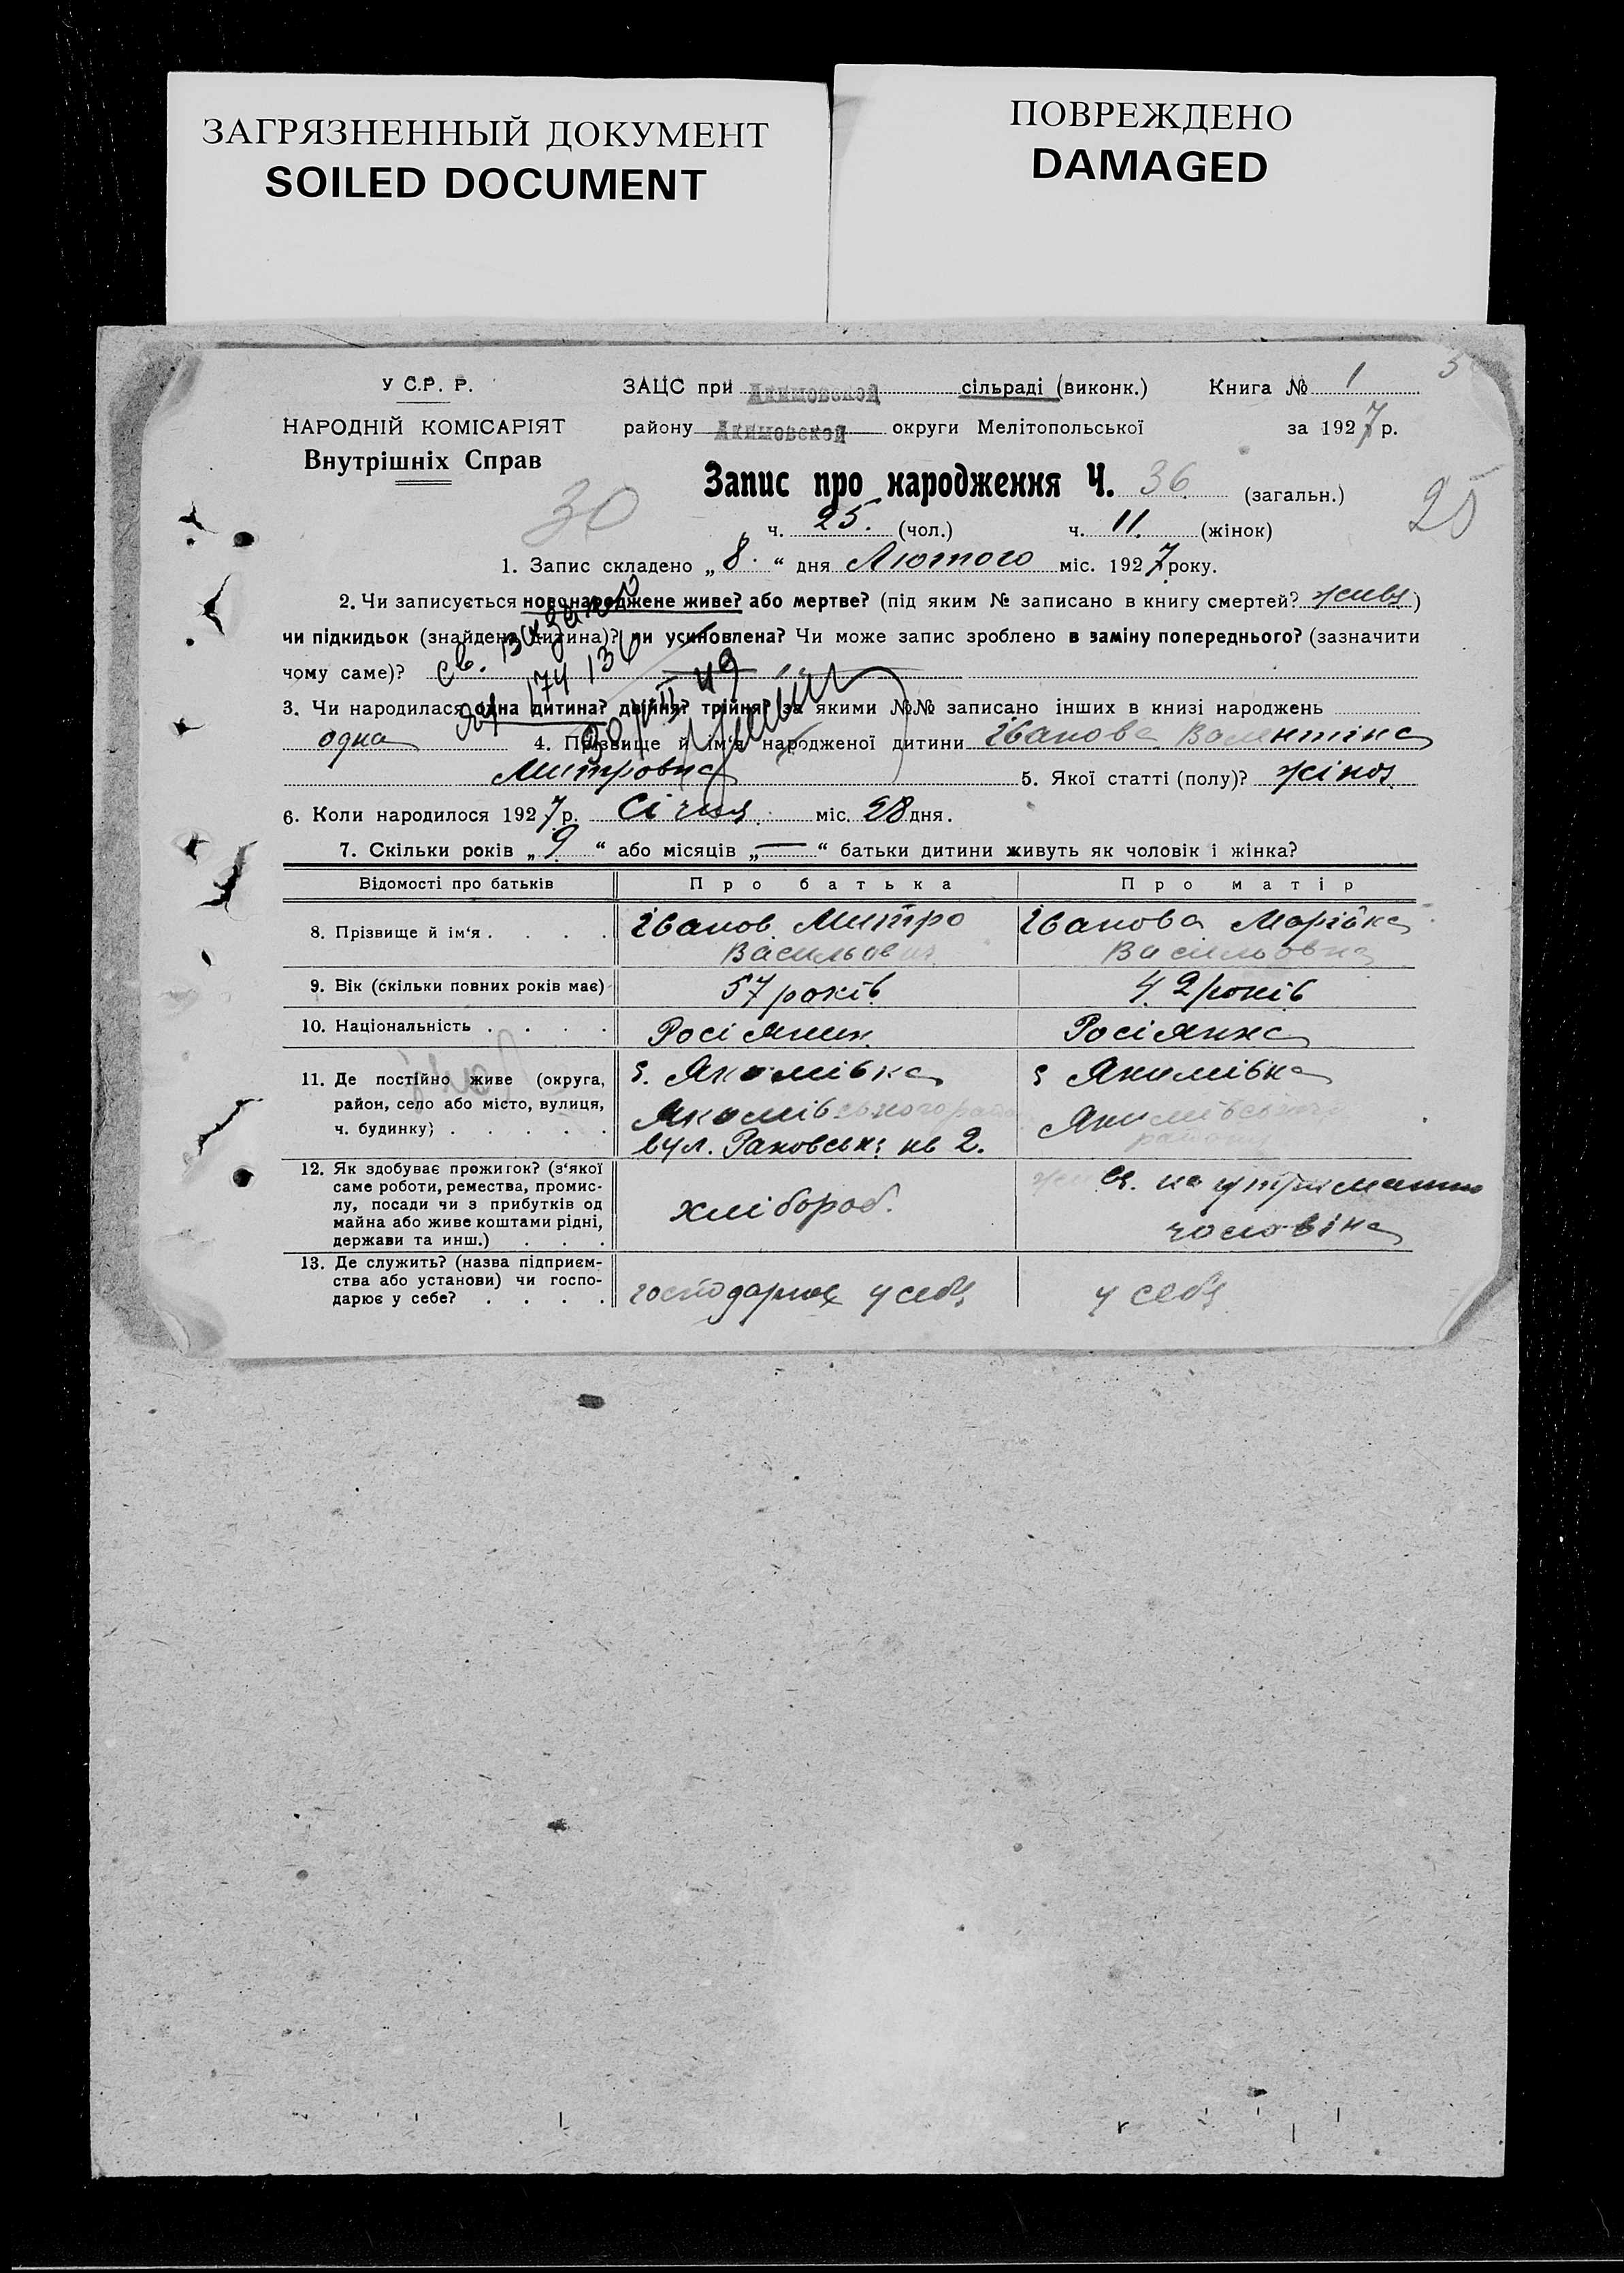 ЗАГРЯЗНЕННЫЙ ДОКУМЕНТ
SOILED DOCUMENT
ПОВРЕЖДЕНО
DAMAGED
У С.Р. Р.
НАРОДНІЙ КОМІСАРІЯТ
Внутрішніх Справ
ЗАЦС при Акимовской сільраді (виконк.) Книга № 1
району Акимовской округи Мелітопольської за 1927 р.
Запис про народження Ч. 36 (загальн.)
30
25
ч. 25. (чол.) ч. 11. (жінок)
1. Запис складено „8.“ дня Лютого міс. 1927 року.
2. Чи записується новонароджене живе? або мертве? (під яким № записано в книгу смертей? живе)
чи підкидьок (знайдена дитина)? чи усиновлена? Чи може запис зроблено в заміну попереднього? (зазначити
чому саме)?
3. Чи народилася одна дитина? двійня? трійня? за якими №№ записано інших в книзі народжень
одна 4. Прізвище й ім‘я народженої дитини Іванова Валентіна
Митровна 5. Якої статті (полу)? жіноч
6. Коли народилося 1927 р. Січня міс. 28 дня.
7. Скільки років „9“ або місяців „—“ батьки дитини живуть як чоловік і жінка?
Відомості про батьків Про батька Про матір
8. Прізвище й ім‘я . . . . Іванов Митро Васильович Іванова Марійка Васильовна
9. Вік (скільки повних років має) 57 років 42 років
10. Національність . . . . Росіянин Росіянка
11. Де постійно живе (округа, район, село або місто, вулиця, ч. будинку) . . . . . с. Якимівка Якимівського району вул. Раковськ. № 2. с Якимівка Якимівського району
12. Як здобуває прожиток? (з‘якої саме роботи, ремества, промислу, посади чи з прибутків од майна або живе коштами рідні, держави та инш.) . . . хлібороб. на утриманню чоловіка
13. Де служить? (назва підприємства або установи) чи господарює у себе? . . . . господарює у себе у себе